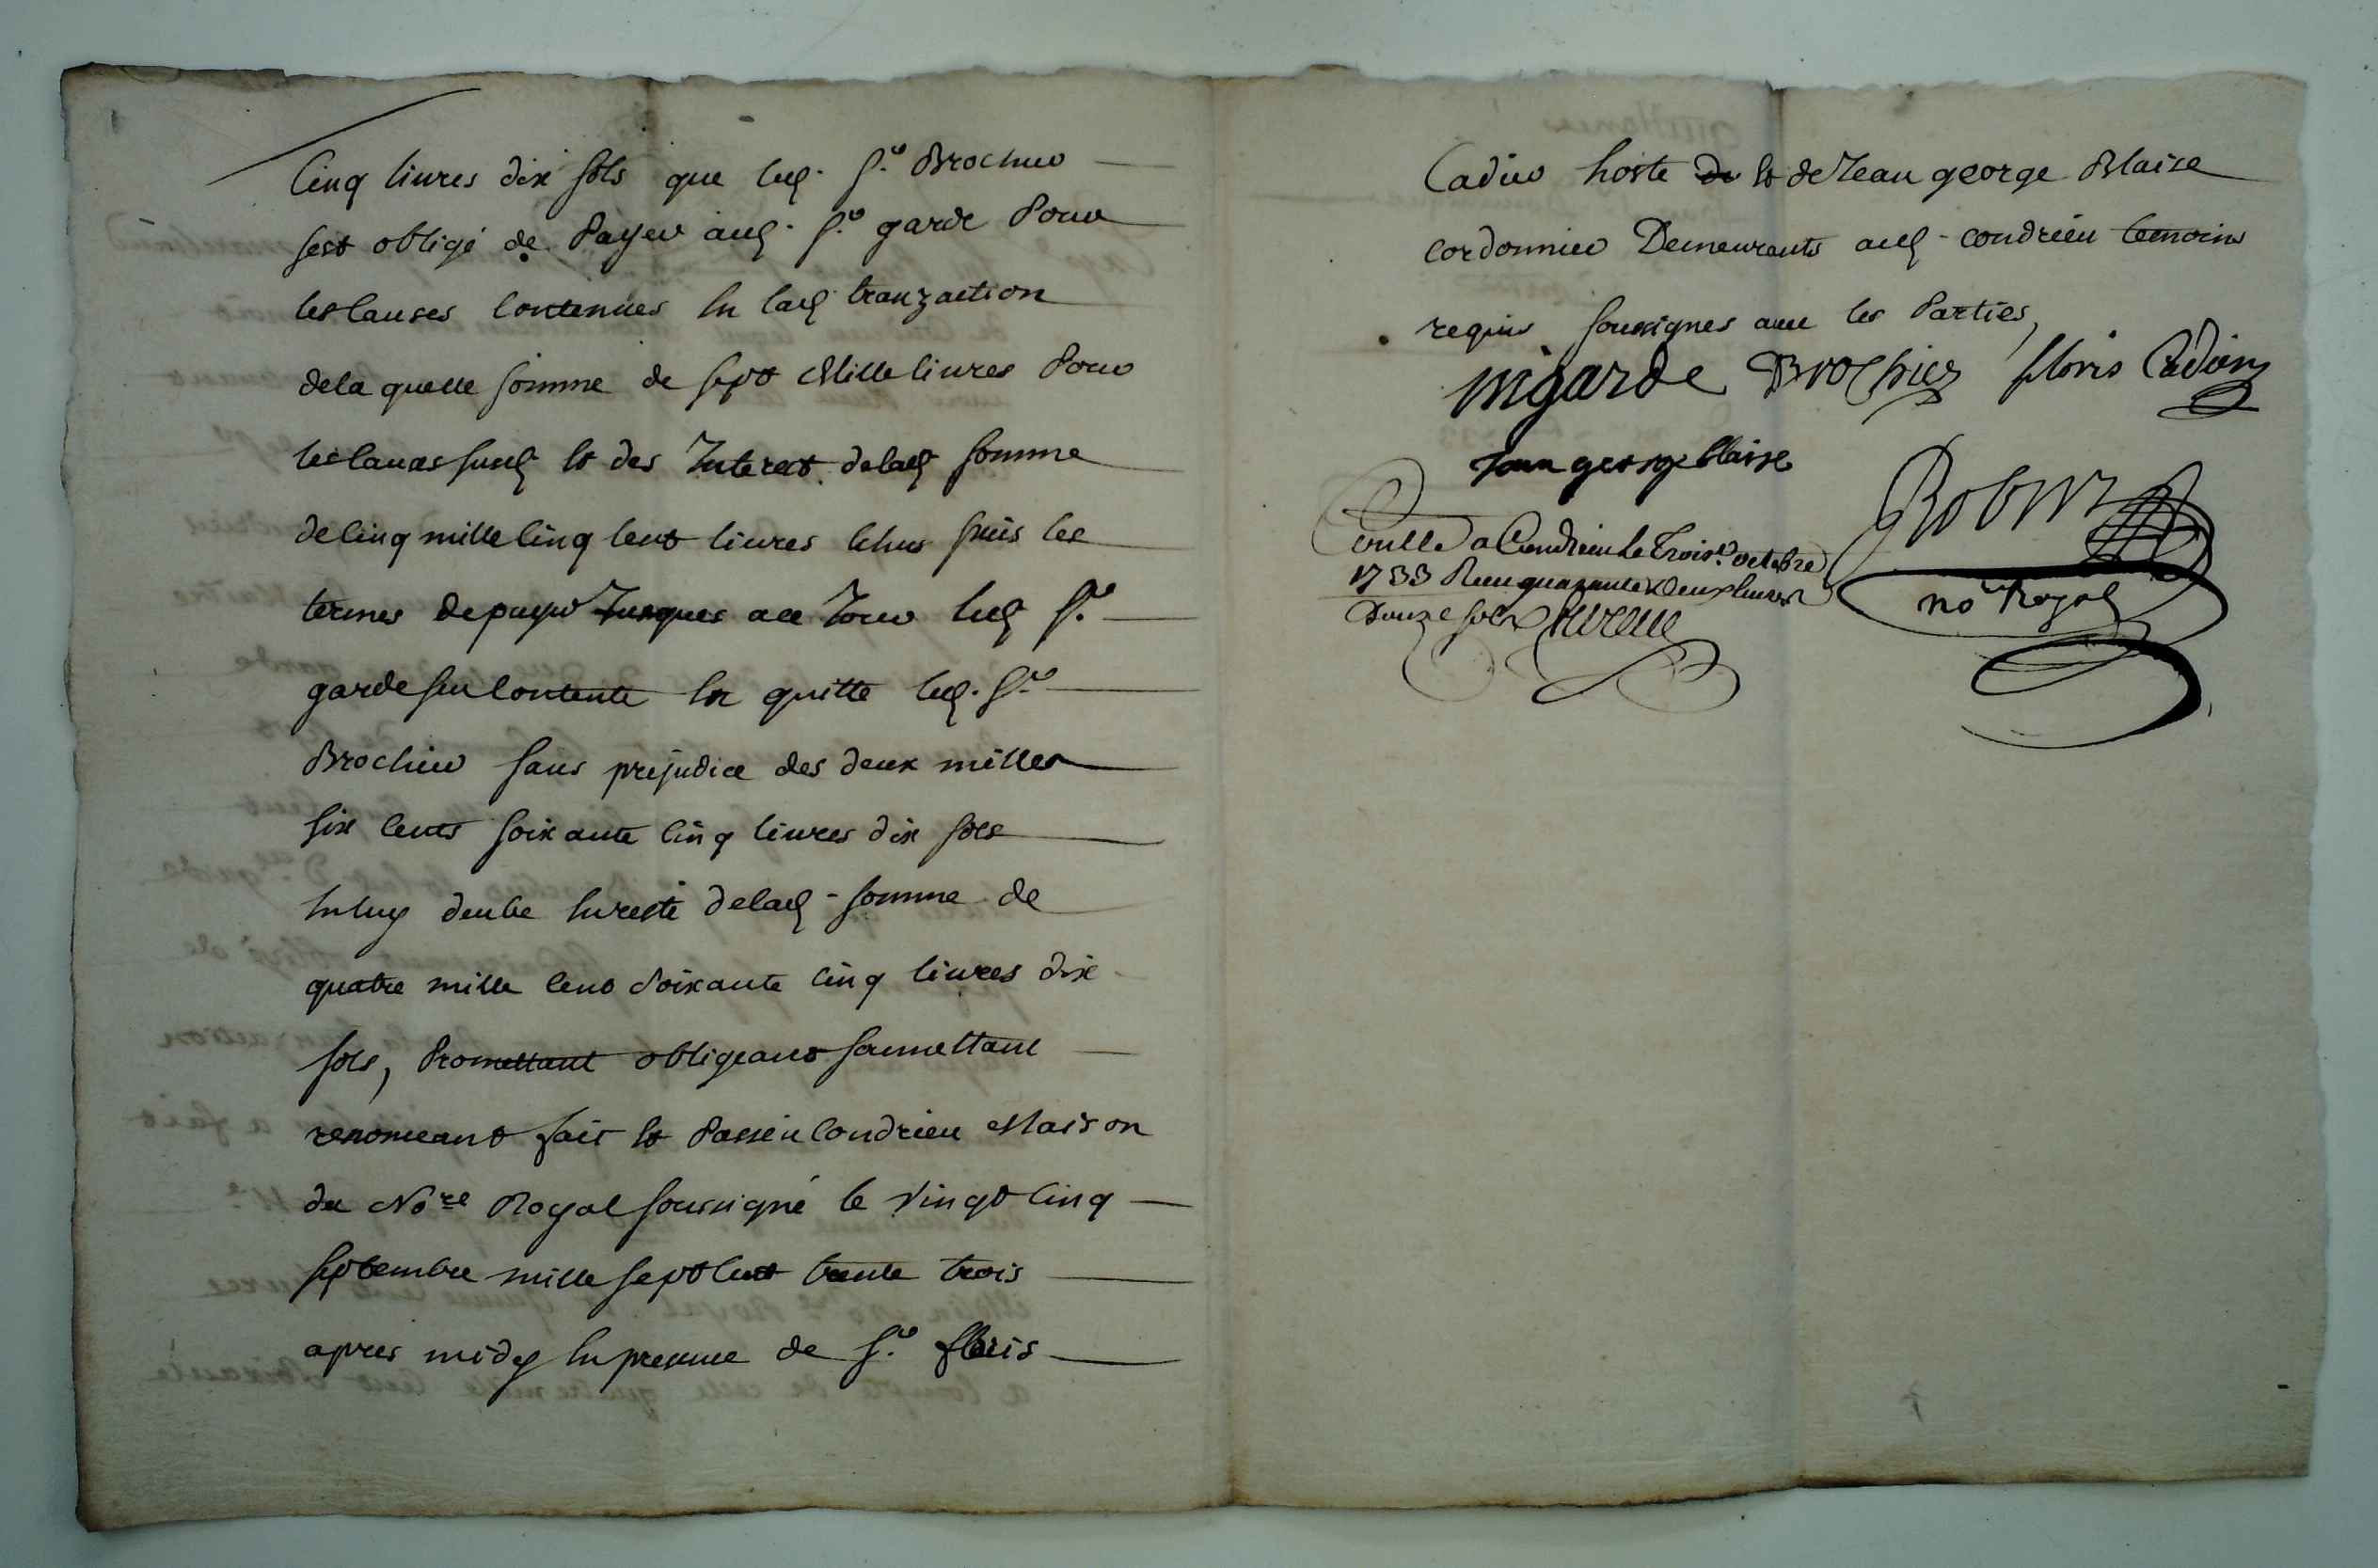 Cinq livres dix sols que led. Sr. Brochier
sest obligé de Payer aud. Sr. garde Pour
les Causes Contenues En lad. tranzaction
de la quelle somme de sept Mille livres Pour
les Causes susd. Et des Interest delad. somme
de Cinq mille Cinq Cent livres Echus puis les
termes de payer Jusques a ce Jour led. Sr.
garde sen Contente En quitte led. Sr.
Brochier sans prejudice des deux milles
six Cents soixante Cinq livres dix sols
En luy deube En reste delad. somme de
quatre mille Cent Soixante Cinq livres dix
sols, Promettant obligeant soumettant
renonceant fait Et Passé a Condrieu Maison
du No.re Royal soussigné le Vingt Cinq
septembre mille sept Cent trente trois
apres midy En presence de Sr. floris
Cadier hoste Et de Jean george Blaise
Cordonnier Demeurants aud. condrieu temoins
requis soussignes avec les Parties,
mgarde Brochier floris Cadier
Jean george blaise
Conllé a Condrieu Le Trois.e octobre
1733 Reçu quarante Deux livres
Douze sols
Robin
no.re Royal